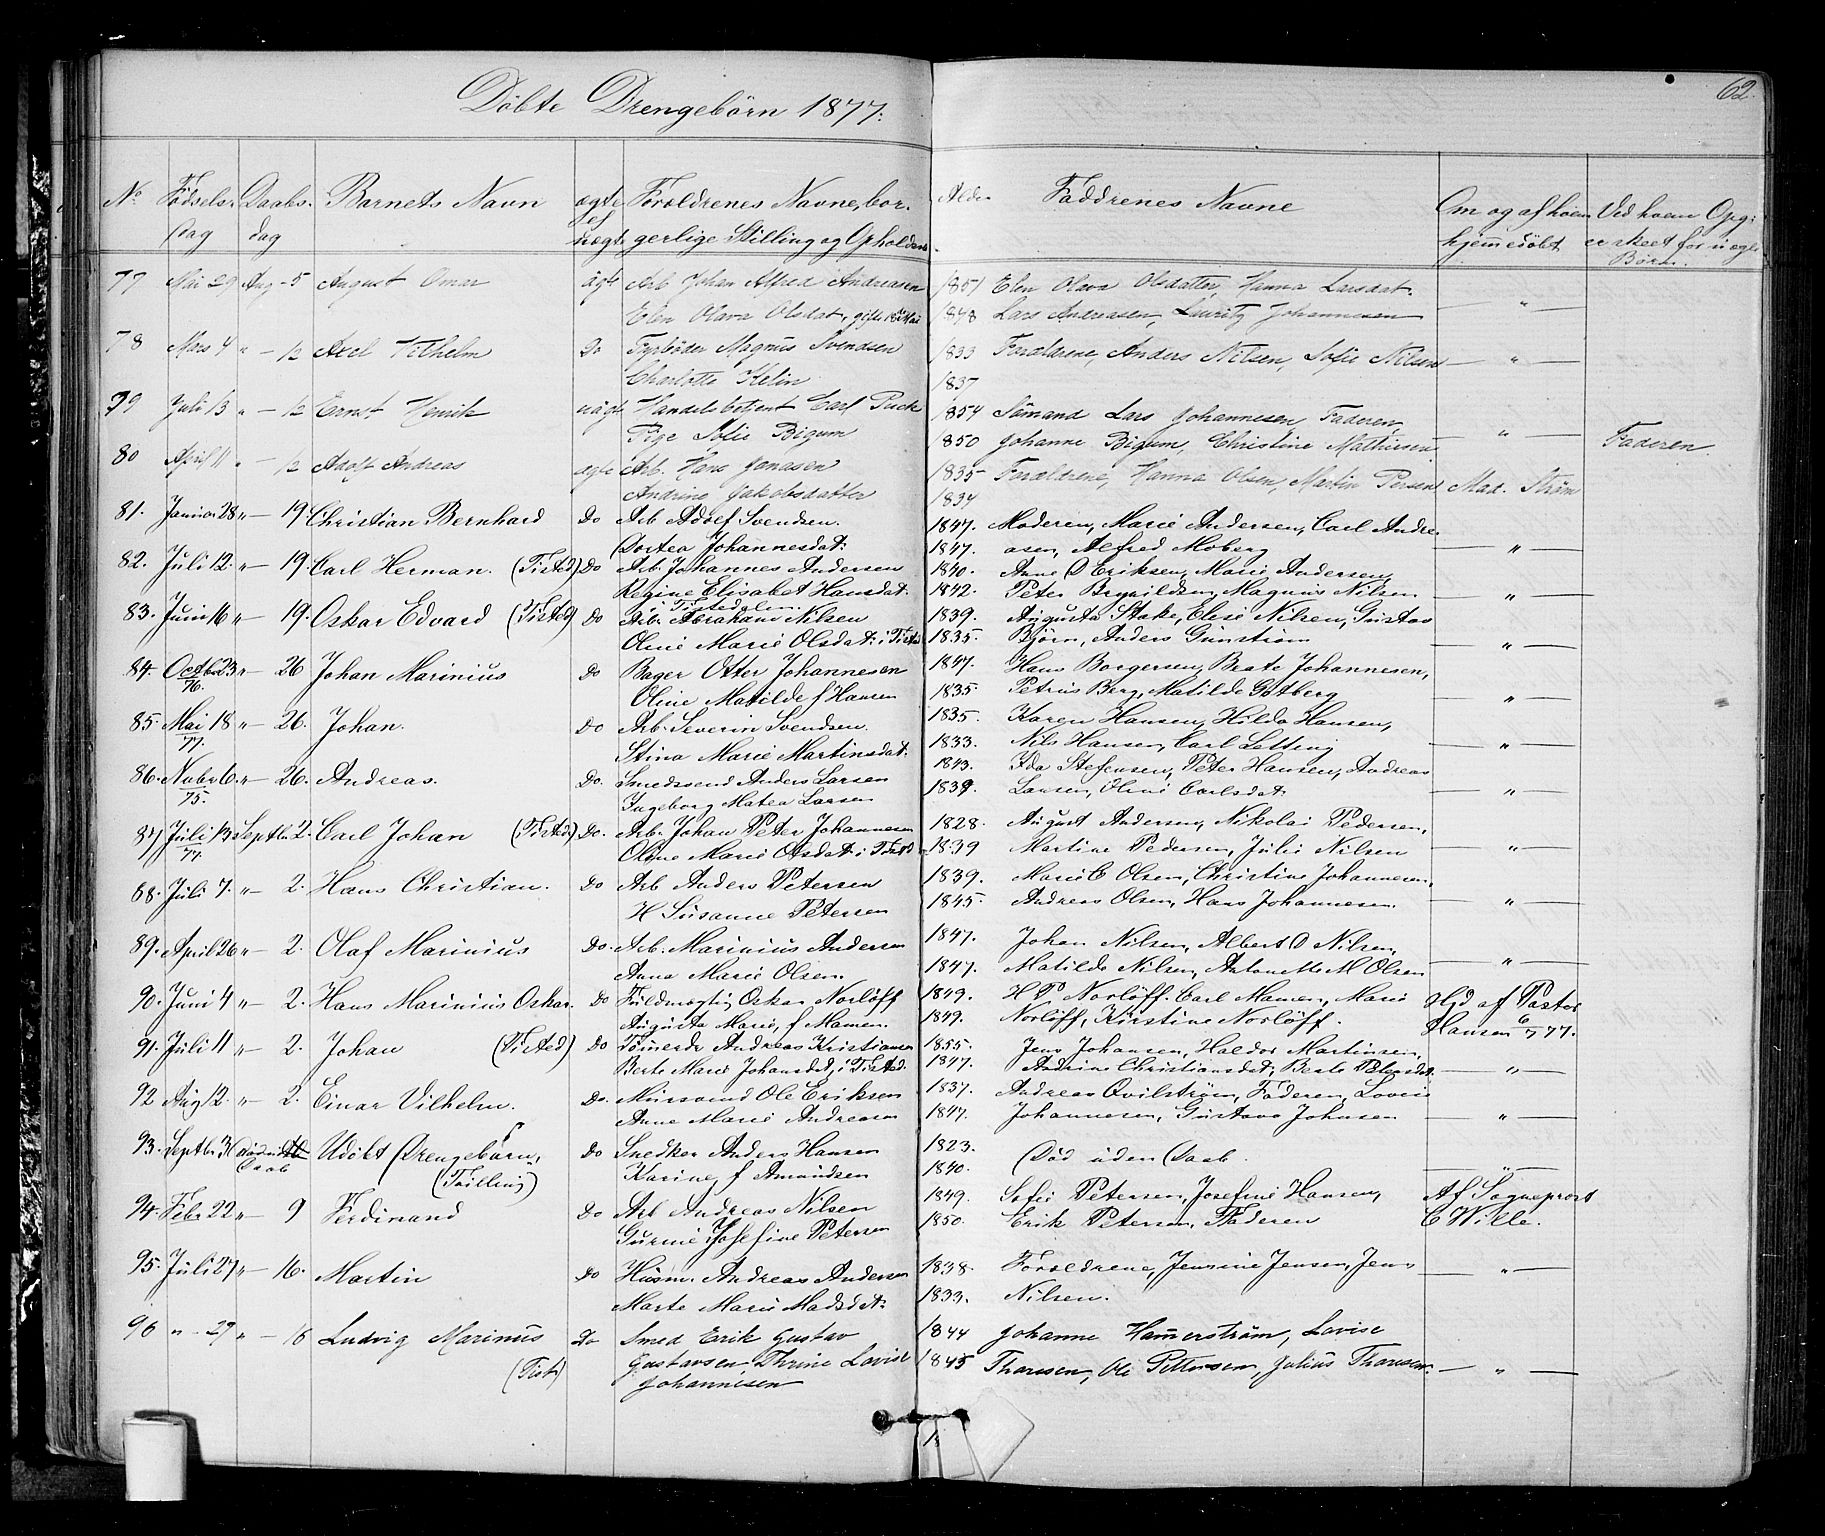 Döbte Drengebörn 1877.
62.
No Födsels- Daabs- Barnets Navn ægte Forældrenes Navne, bor- Alder Faddrenes Navne Om og af hvem Ved hvem Opg:
dag dag uægte gerlige Stilling og Ophold hjemmedöbt er skeet for uægte
Börn.
77 Mai 29 Aug - 5 August Omar ägte Arb Johan Alfred Andreasen 1851 Elen Olava Olsdatter, Hanna Larsdat.
Elen Olava Olsdat, gifte 1848 Lars Andreasen, Lauritz Johannesen — " —
78 Mars 4 " — 12 Axel Vilhelm Do Fyrböder Magnus Svendsen 1833 Forældrene, Anders Nilsen, Sofie Nilsen — " —
Charlotte Kelin 1837
79 Juli 13 " — 12 Ernst Henrik uägte Handelsbetjent Carl Puck 1854 Sömand Lars Johannesen, Faderen,
Pige Sofie Bigum 1850 Johanne Bigum, Christine Mathisen — " — Faderen.
80 April 11 " — 12 Adolf Andreas ægte Arb. Hans Jonasen 1835 Forældrene, Hanna Olsen, Martin Persen Mad. Ström
Andrine Jakobsdatter 1834
81. Januar 28 " — 19. Christian Bernhard Do Arb Adolf Svendsen. 1847. Moderen, Marie Andersen, Carl Andre-
Dortea Johannesdat: 1847. asen, Alfred Moberg — " —
82. Juli 12. " — 19. Carl Herman. (Tisted) Do Arb. Johannes Andersen 1840. Anne O Eriksen, Marie Andersen,
Regine Elisabet Hansdat. 1842. Peter Brynildsen, Magnus Nilsen — " —
i Tistedalen.
83. Juni 16 " — 19. Oskar Edvard (Tisted) Do Arb. Abraham Nilsen 1839. Augusta Stake, Elise Nilsen, Gustav
Oline Marie Olsdat: i Tisted 1835. Björn, Anders Gunström — " —
84. Octbr 23 " — 26 Johan Marinius Do Bager Otter Johannesen 1847. Hans Borgersen, Beate Johannesen,
76. Oline Matilde f Hansen 1835. Petrus Berg, Matilde Gutberg — " —
85. Mai 18 " — 26. Johan. Do Arb. Severin Svendsen. 1835. Karen Hansen, Hilda Hansen,
77. Stina Marie Martinsdat: 1833. Nils Hansen, Carl Letting — " —
86. Novbr 6. " — 26. Andreas. Do. Smedsvend Anders Larsen 1843. Ida Stefensen, Peter Hansen, Andreas
75. Ingeborg Matea Larsen 1839. Larsen, Oline Carlsdat: — " —
87 Juli 13 Septbr 2. Carl Johan (Tisted) Do. Arb. Johan Peter Johannesen 1828. August Andersen, Nikolai Pedersen,
77. Oline Marie Olsdat: i Tisted 1839 Martine Pedersen, Julie Nilsen — " —
68. Juli 7. " — 2. Hans Christian. Do Arb Anders Petersen 1839. Marie C Olsen, Christine Johannesen,
H Susanne Petersen 1845. Andreas Olsen, Hans Johannesen. — " —
89. April 26 " — 2. Olaf Marinius Do. Arb. Marinius Andersen 1847. Johan Nilsen, Albert O Nilsen,
Anna Marie Olsen. 1847. Matilde Nilsen, Antonette M Olsen — " —
90. Juni 4 " — 2. Hans Marinius Oskar. Do Fuldmægtig Oskar Norlöff 1849. H P Norlöff. Carl Mamen, Marie Hjd af Pastor
Augusta Marie, f Mamen. 1849. Norlöff, Kirstine Norlöff. Hansen 6/7 77.
91. Juli 11 " — 2. Johan (Tisted) Do Tömerdr Andreas Kristiansen 1855. Jens Johansen, Haldor Martinsen,
Berte Marie Johansdat, i Tisted. 1847. Andrine Christiansdat, Berte Petersdat. — " —
92 Aug 12. " — 2. Einar Vilhelm. Do. Mursvend Ole Eriksen 1837. Andreas Qvilström, Faderen, Lovise
Anne Marie Andreasen 1847. Johannesen, Gustava Johnsen — " —
93. Septbr 3 Död uden Udöbt Drengebarn. Do Snedker Anders Hansen 1823. Död uden Daab.
Daab (Tvilling) Karine f Amundsen 1840. — " —
94. Febr 22 " — 9 Ferdinand Do Arb Andreas Nilsen 1849. Sofie Petersen, Josefine Hansen, Af Sogneprest
Gurine Josefine Petersen 1850. Erik Petersen, Faderen C Wille.
95. Juli 27 " — 16. Martin Do Husm. Andreas Andersen 1838. Forældrene, Jensine Jensen, Jens — " —
Marte Marie Madsdat: 1833. Nilsen.
96 " - 29 " — 16 Ludvig Marinus Do Smed Erik Gustav 1844 Johanne Hammerström, Lovise
(Tist.) Gustavsen Thrine Lovise 1845 Thoresen, Ole Pettersen, Julius Thoresen. — " —
Johannesen